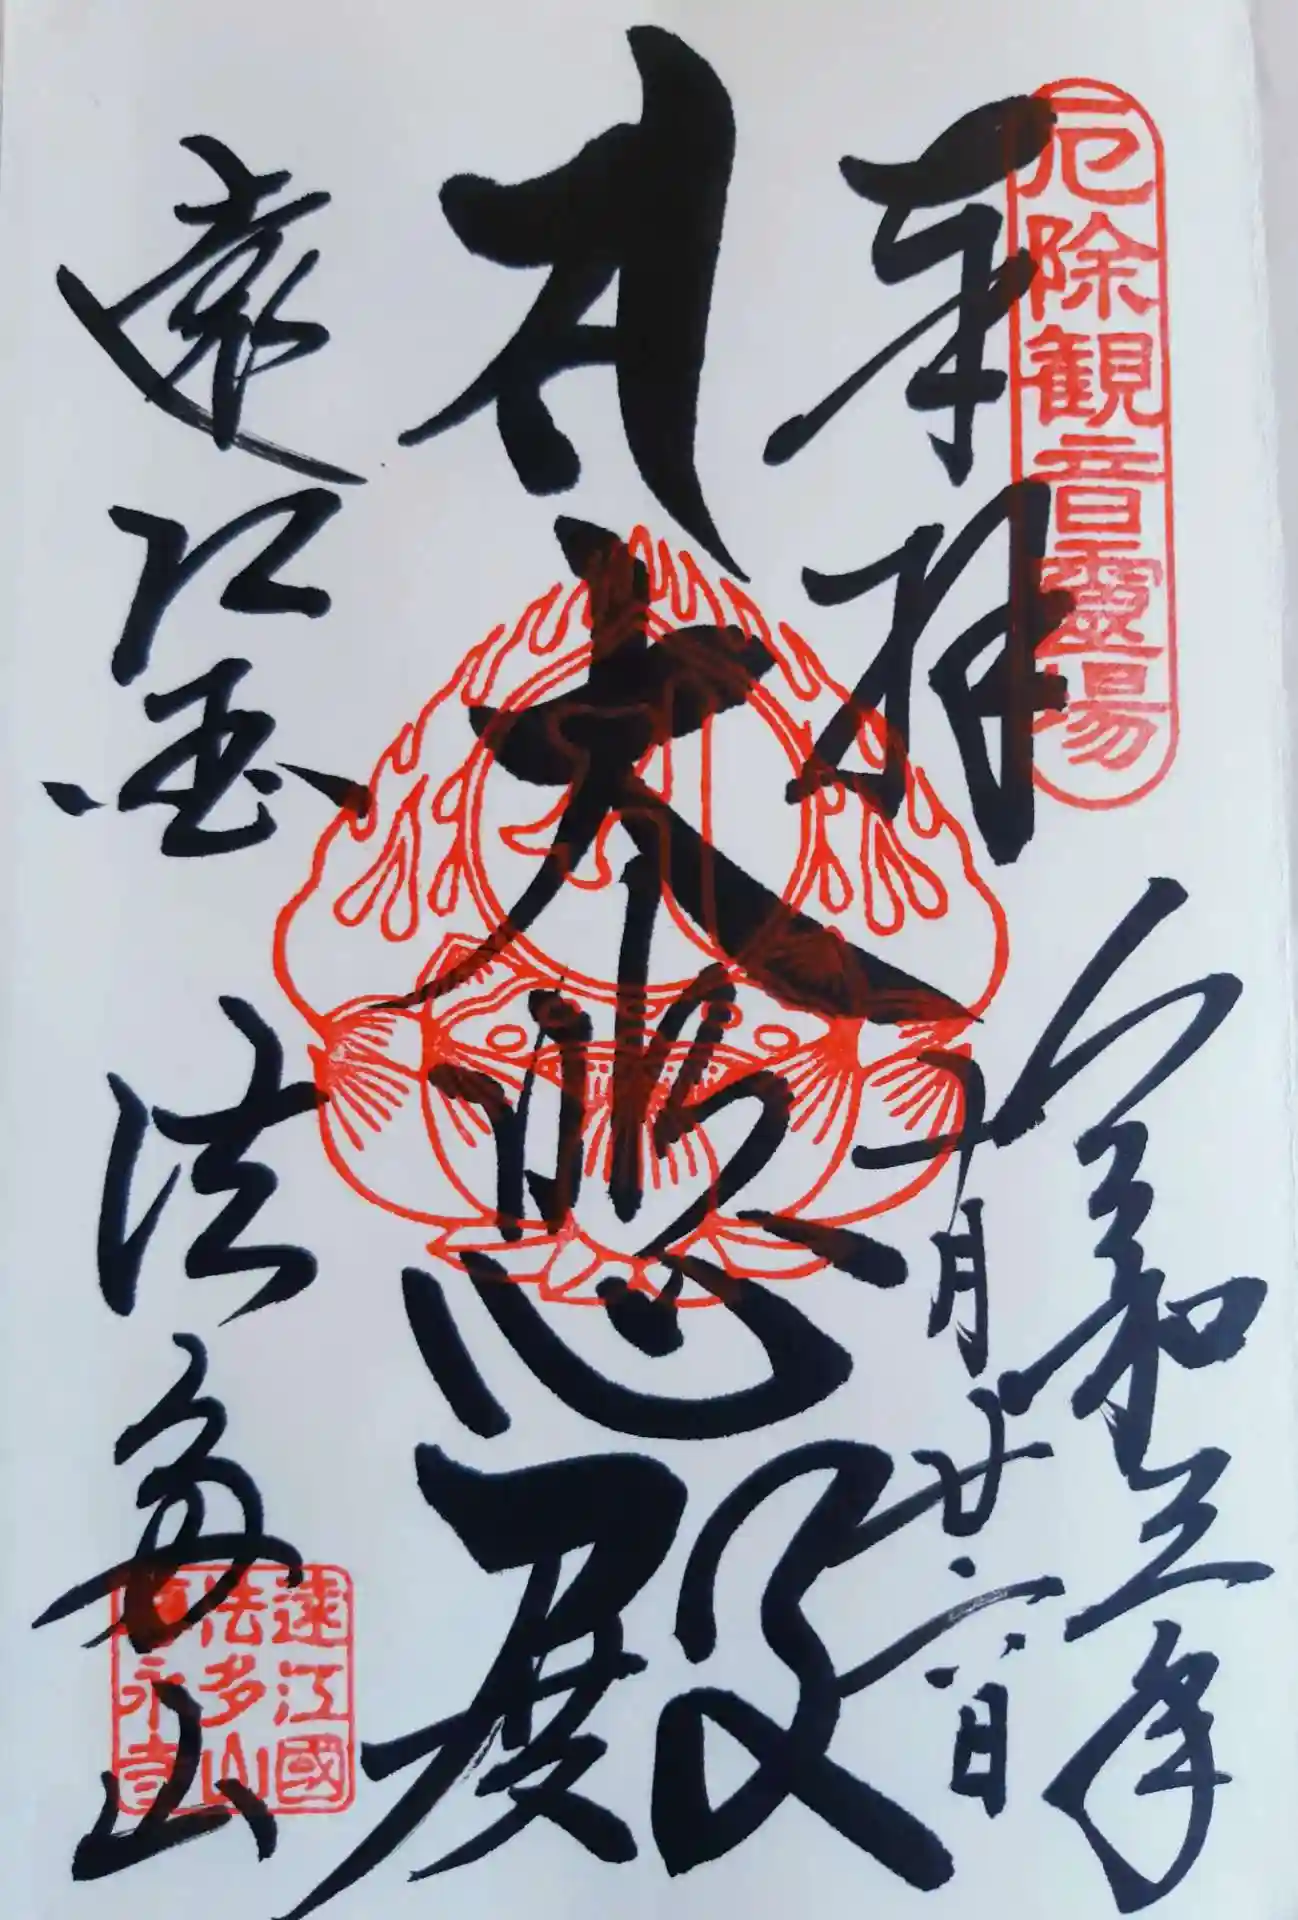 厄除観音靈場
奉拝
令和三年
十月廿六日
大悲殿
遠江国 法多山
遠江國
法多山
尊永寺